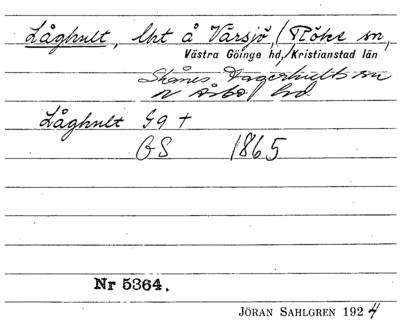 Låghult, lht å Varsjö (Röke sn,
Västra Göinge hd, Kristianstad län
Skånes Fagerhults sn
N Åsbo hd
Låghult Ga +
GS 1865
Nr 5364.
JÖRAN SAHLGREN 1924